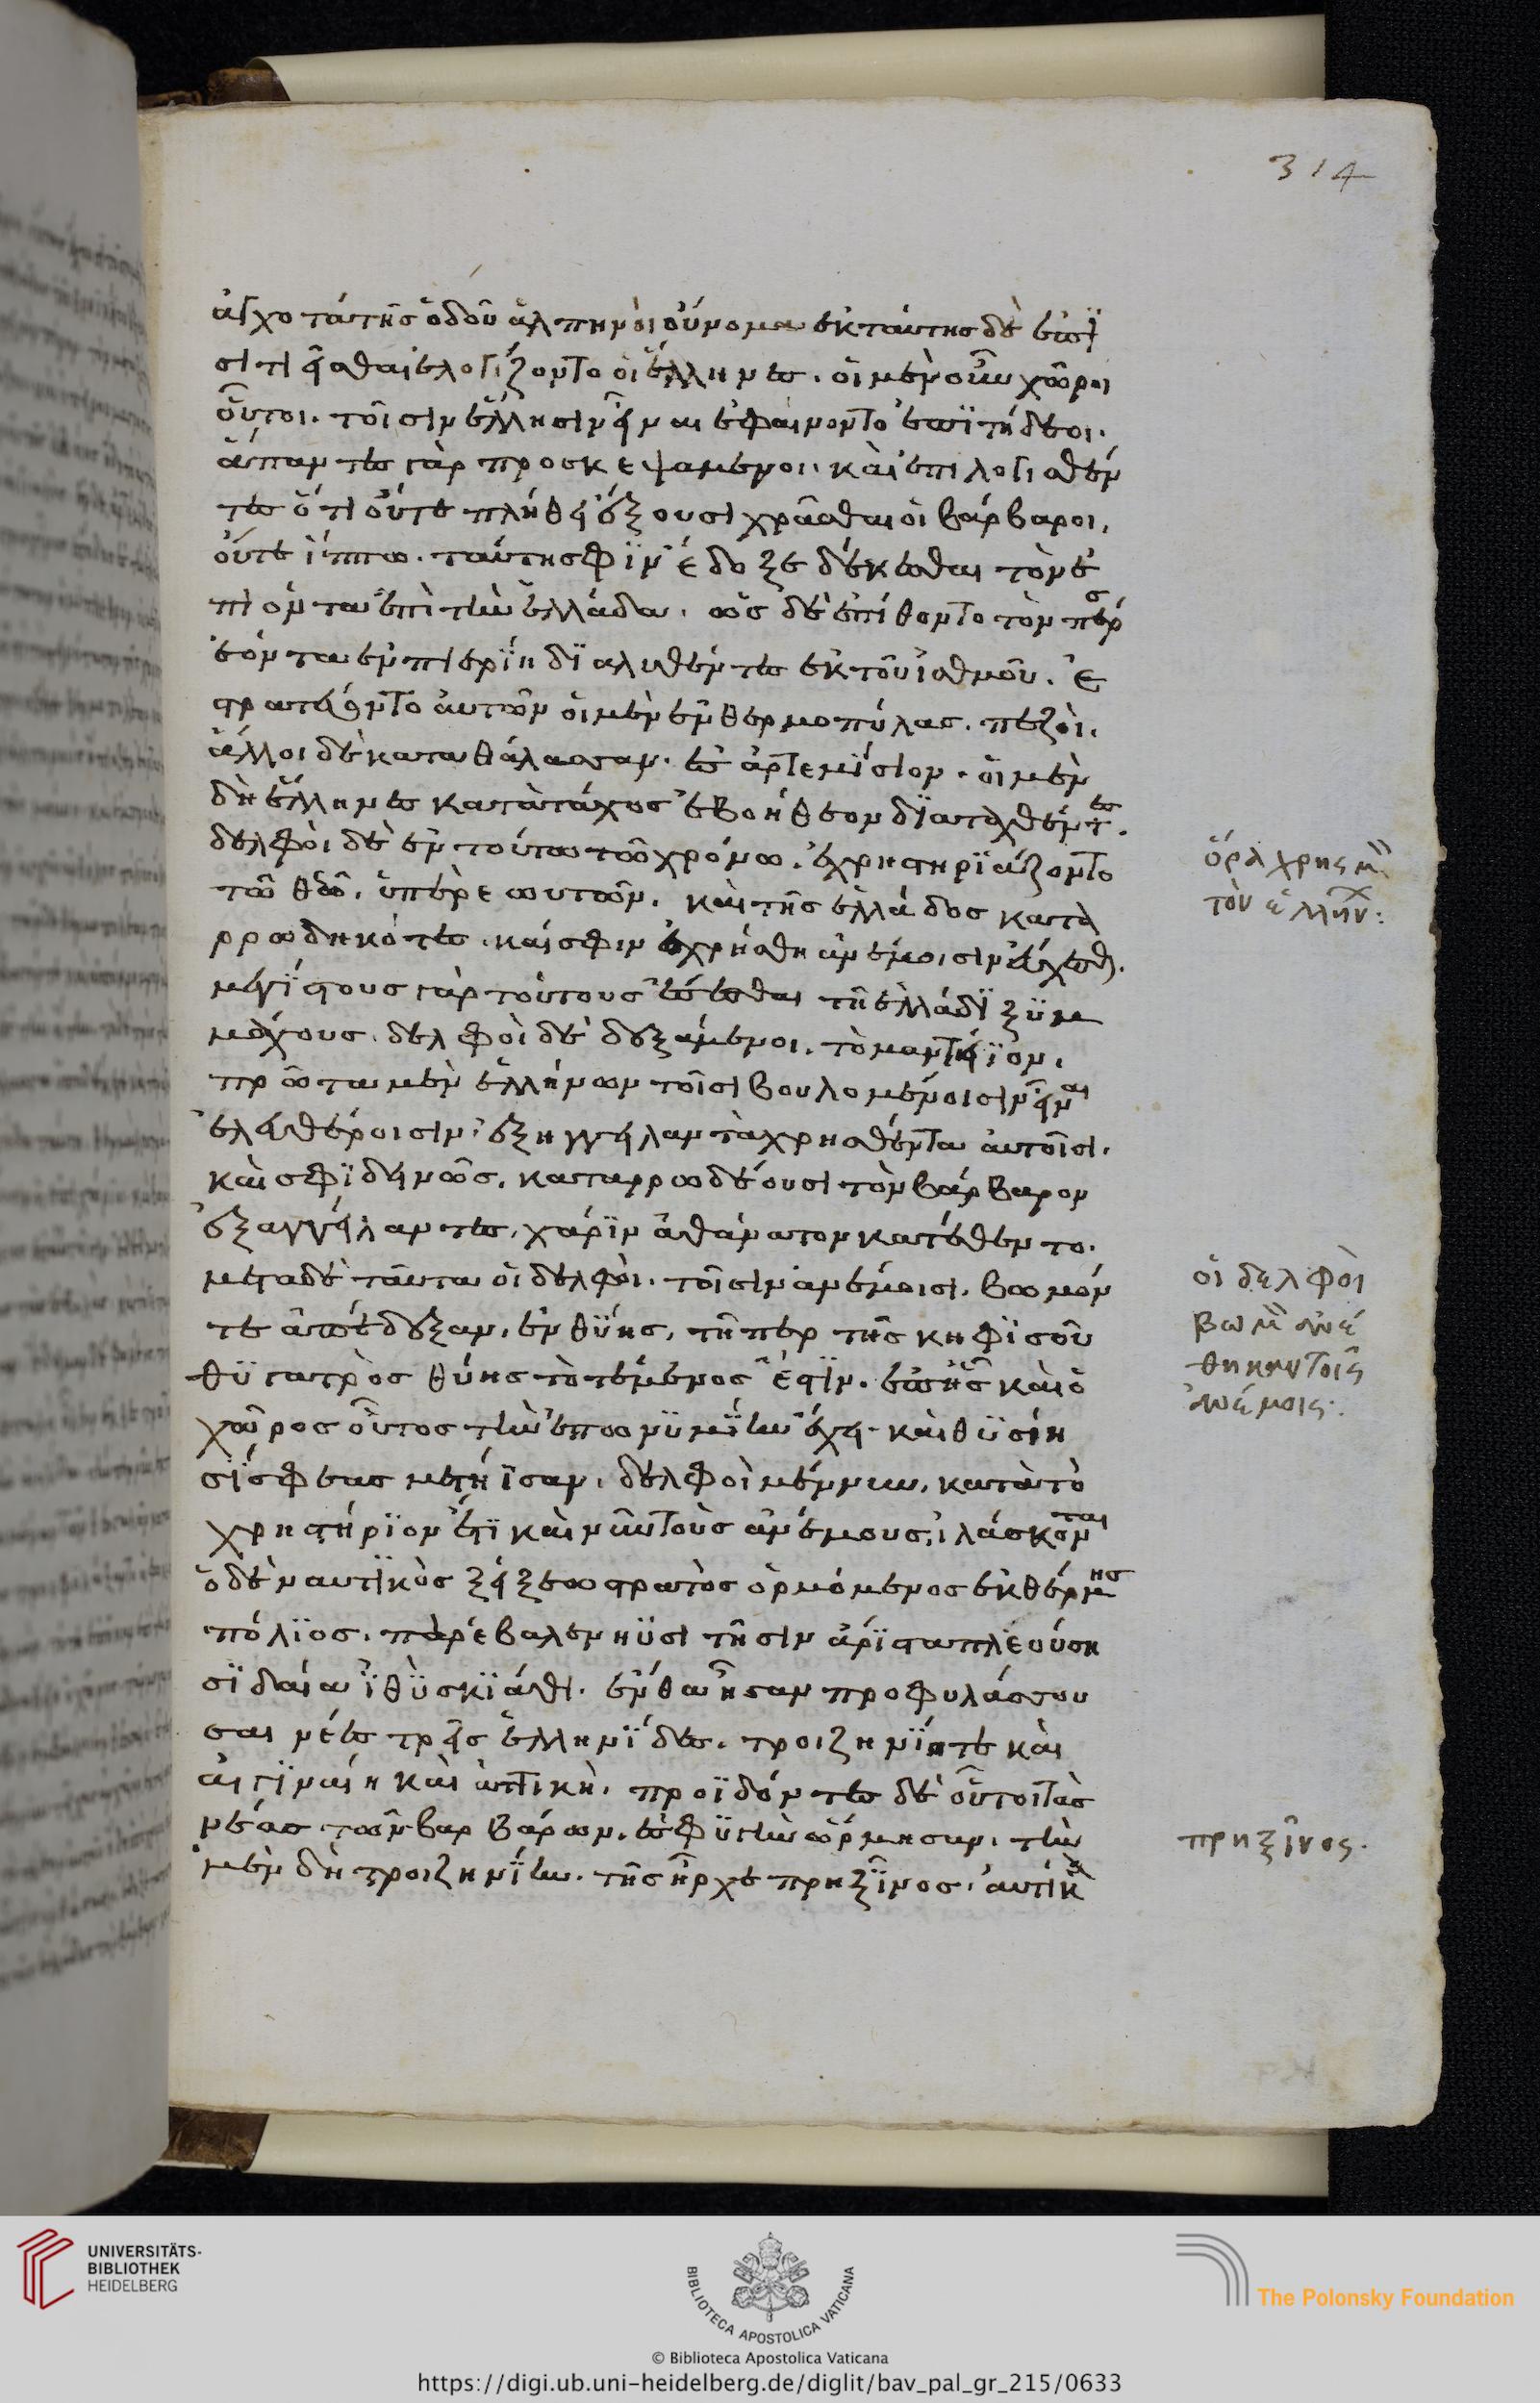 314
ἀγχοτάτης ὁδοῦ ἀλπηνοὶ οὔνομα ἐκ ταύτης δὲ ἐπι
σιτιεῖσθαι ἐλογίζοντο οἱ ἕλληνες. οἱ μέν νυν χῶροι
οὗτοι. τοῖσιν ἕλλησιν εἶναι ἐφαίνοντο ἐπιτήδεοι.
ἅπαντες γὰρ προσκεψάμενοι. καὶ ἐπιλογισθέν
τες ὅτι οὔτε πλήθει ἕξουσι χρᾶσθαι οἱ βάρβαροι,
οὔτε ἵππω. ταύτη σφιν ἔδοξε δέκεσθαι τὸν ἐ
πιόντα ἐπὶ τὴν ἑλλάδα. ὡς δὲ ἐπύθοντο τὸν πέρσ
ἐόντα ἐν πιερίη διαλυθέντες ἐκ τοῦ ἰσθμοῦ. ἐ
στρατεύοντο αὐτῶν οἱ μὲν ἐν θερμοπύλας. πεζοὶ.
ἄλλοι δὲ κατα θάλασσαν. ἐς ἀρτεμίσιον. οἱ μὲν
δὴ ἕλληνες κατὰ τάχος ἐβοήθεον διαταχθέντες.
δελφοὶ δὲ ἐν τούτω τῶ χρόνω. ἐχρηστηριάζοντο
τῶ θεῶ. ὑπὲρ εωυτῶν. καὶ τῆς ἑλλάδος κατα
ρρωδηκότες. καί σφιν ἐχρήσθη ἀνέμοισιν εὔχεσθ.
μεγίστους γὰρ τούτους ἔσεσθαι τῆ ἑλλάδι ξυμ
μάχους. δελφοὶ δὲ δεξάμενοι. τὸ μαντήϊον.
πρῶτα μὲν ἑλλήνων τοῖσι βουλομένοισιν εἶναι
ἐλευθέροισιν. ἐξήγγειλαν τὰ χρησθέντα αὐτοῖσι.
καὶ σφι δεινῶς. καταρρωδέουσι τὸν βάρβαρον
ἐξαγγείλαντες. χάριν ἀθάνατον κατέθεντο.
μετα δὲ ταῦτα οἱ δελφοὶ. τοῖσιν ἀνέμοισι. βωμόν
τε ἀπέδεξαν. ἐν θύης. τῆπερ τῆς κηφισοῦ
θυγατρὸς θύης τὸ τέμενος ἐστιν. ἐπ ἧς καὶ ὁ
χῶρος οὗτος τὴν ἐπωνυμίην ἔχει. καὶ θυσίη
σί σφεας μετήϊσαν. δελφοὶ μέν νυν. κατὰ τὸ
χρηστήριον ἔτι καὶ νῦν τοὺς ἀνέμους. ἱλάσκονται
ὁ δὲ ναυτικὸς ξέρξεω στρατὸς ὁρμόμενος ἐκ θέρμης
πόλιος. παρέβαλε νηυσὶ τῆσιν ἄριστα πλεούση
σι δέκα ἰθὺ σκιάθου. ἔνθα ἦσαν προφυλάσσου
σαι νέες τρεῖς ἑλληνίδες. τροιζηνίη τε καὶ
αἰγιναίη καὶ ἀττικὴ. προϊδόντες δὲ οὗτοι τὰς
νέας τῶν βαρβάρων. ἐς φυγὴν ὥρμησαν. τὴν
μὲν δὴ τροιζηνίην. τῆς ἦρχε πρηξῖνος. αὐτίκα
ὅρα χρησμ
τὸν ἑλλήν:
οἱ δελφοὶ
βωμ ἀνέ
θηκαν τοῖς
ἀνέμοις:
πρηξῖνος.
UNIVERSITÄTS-
BIBLIOTHEK
HEIDELBERG
BIBLIOTECA APOSTOLICA VATICANA
© Biblioteca Apostolica Vaticana
The Polonsky Foundation
https://digi.ub.uni-heidelberg.de/diglit/bav_pal_gr_215/0633